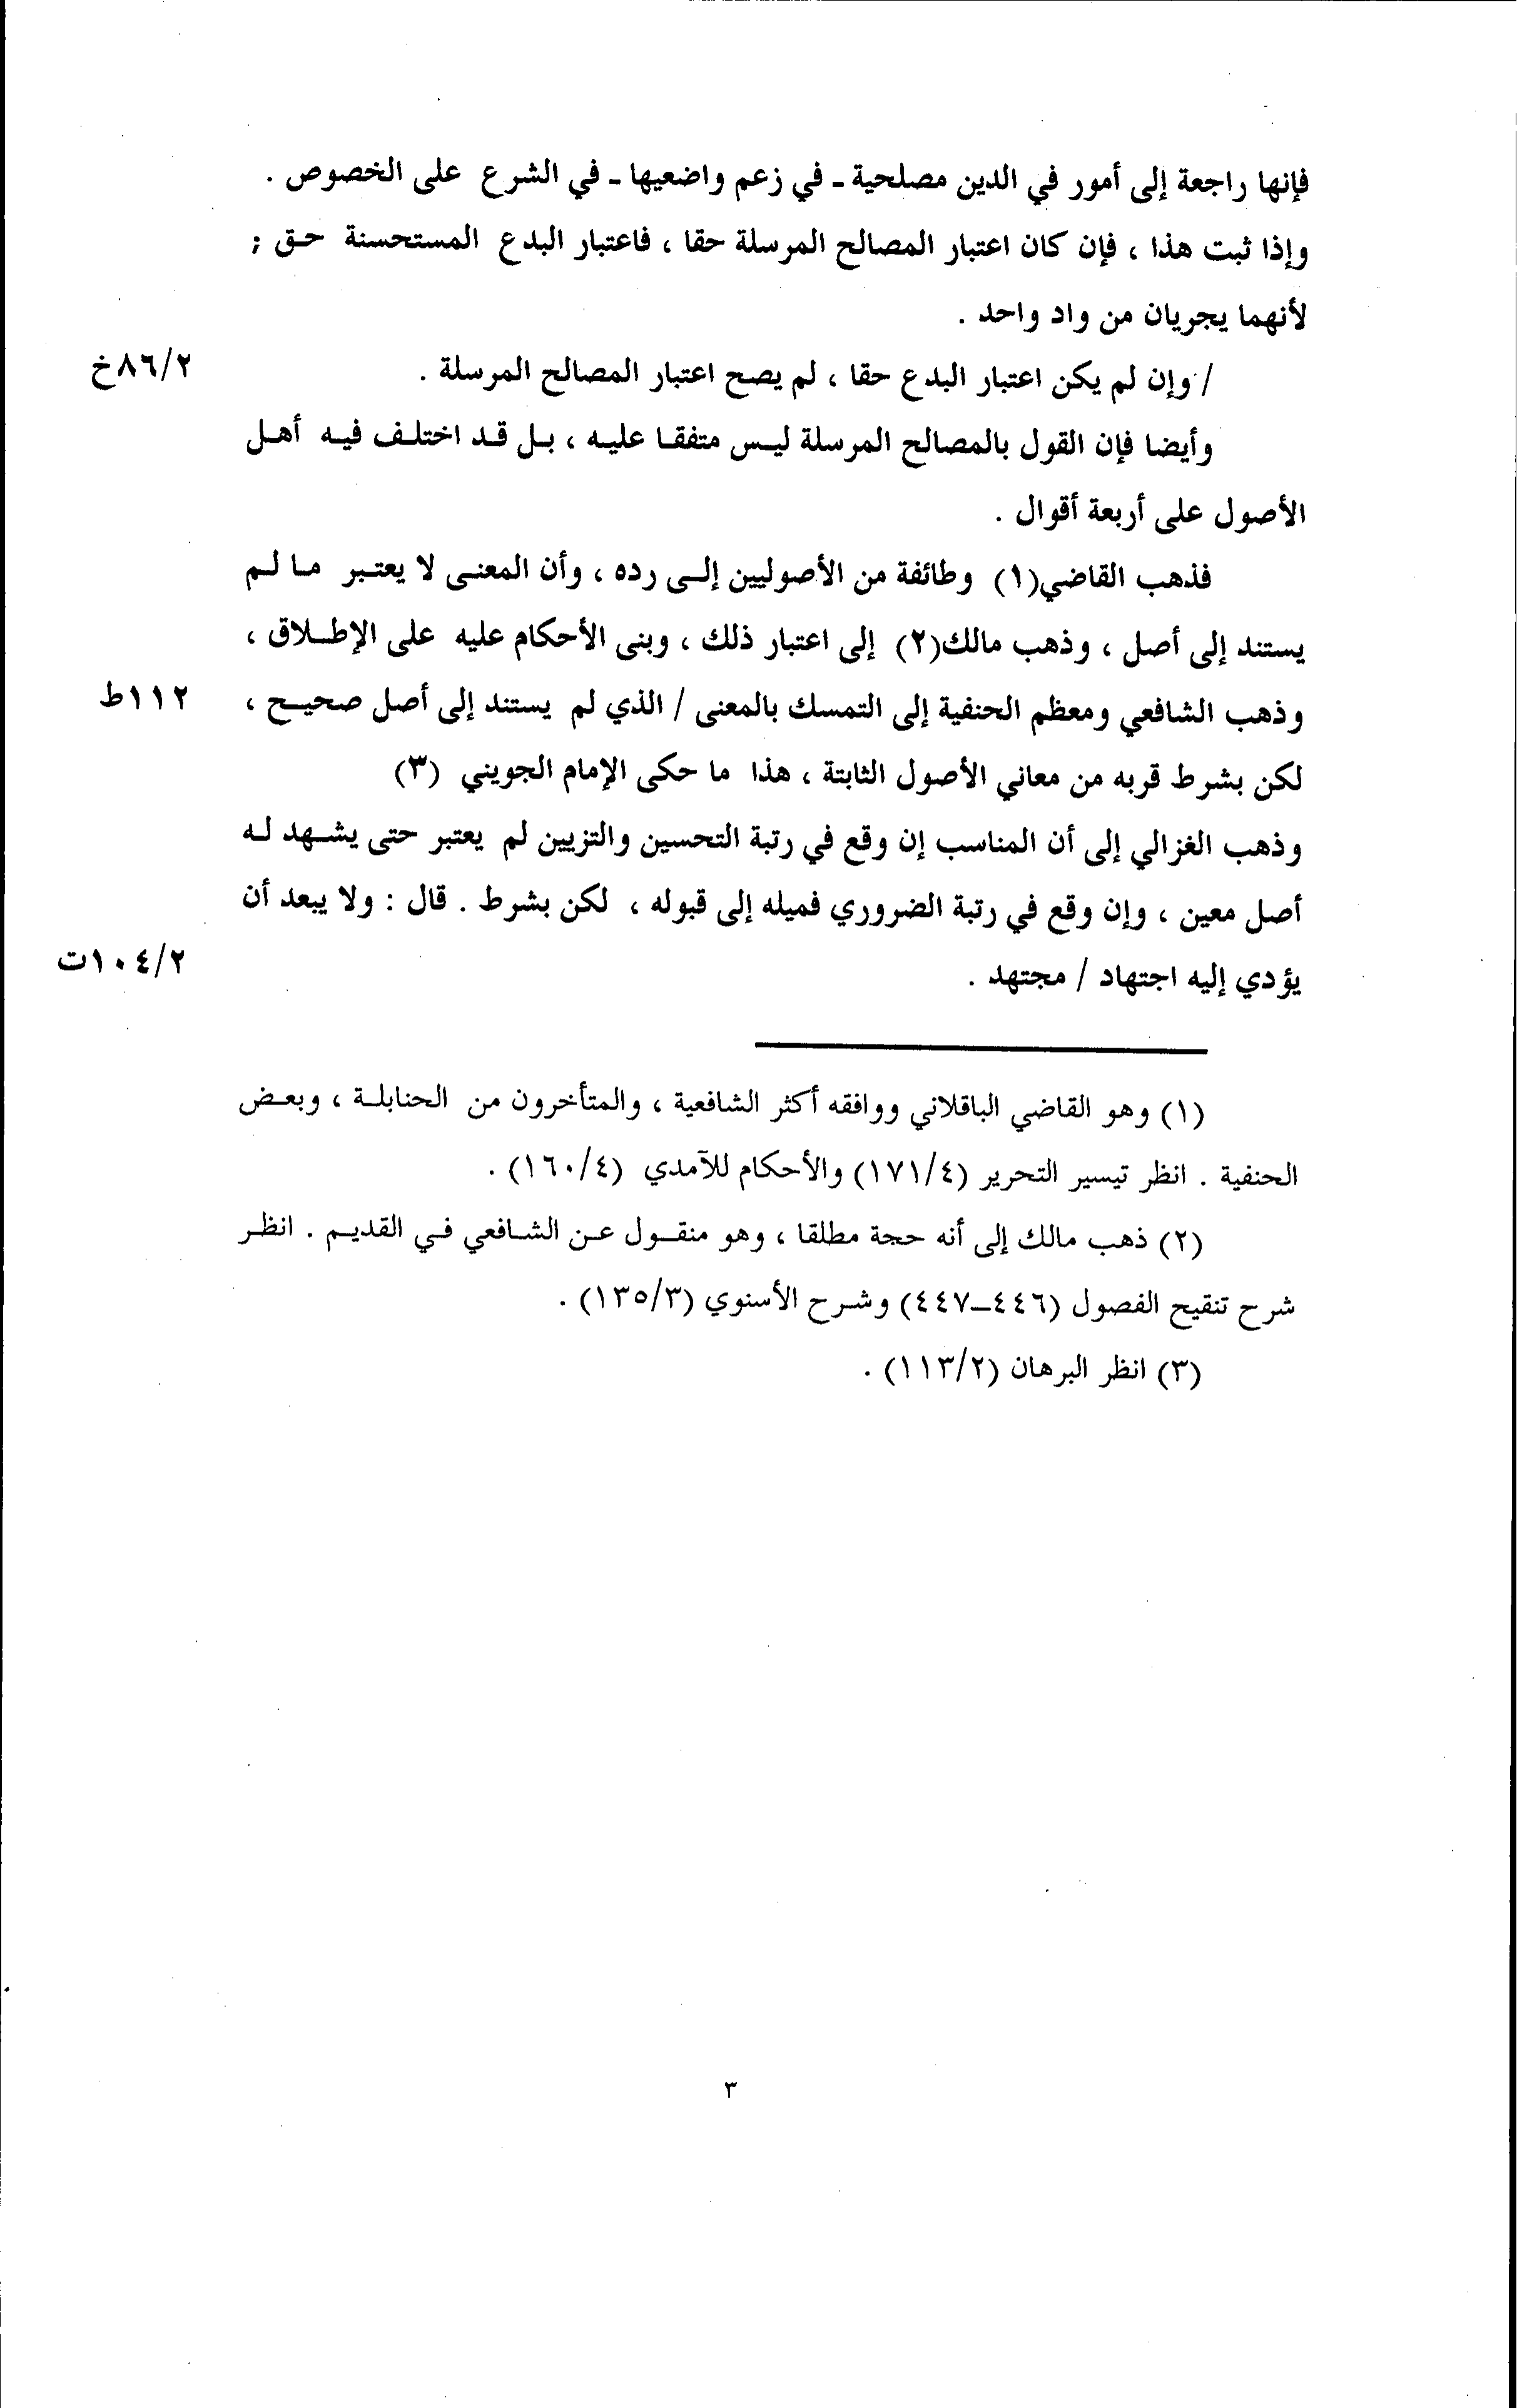 فإنها راجعة إلى أمور في الدين مصلحية ـ في زعم واضعيها ـ في الشرع على الخصوص .
وإذا ثبت هذا ، فإن كان اعتبار المصالح المرسلة حقا ، فاعتبار البدع المستحسنة حـق ;
لأنهما يجريان من واد واحد .
/ وإن لم يكن اعتبار البدع حقا ، لم يصح اعتبار المصالح المرسلة .
٨٦/٢خ
وأيضا فإن القول بالمصالح المرسلة ليـس متفقـا عليـه ، بـل قـد اختلـف فيـه أهـل
الأصول على أربعة أقوال .
فذهب القاضي(١) وطائفة من الأصوليين إلـى رده ، وأن المعنـى لا يعتـبر مـا لـم
يستند إلى أصل ، وذهب مالك(٢) إلى اعتبار ذلك ، وبنى الأحكام عليه على الإطـلاق ،
وذهب الشافعي ومعظم الحنفية إلى التمسك بالمعنى / الذي لم يستند إلى أصل صحيـح ،
١١٢ط
لكن بشرط قربه من معاني الأصول الثابتة ، هذا ما حكى الإمام الجويني (٣)
وذهب الغزالي إلى أن المناسب إن وقع في رتبة التحسين والتزيين لم يعتبر حتى يشـهد لـه
أصل معين ، وإن وقع في رتبة الضروري فميله إلى قبوله ، لكن بشرط . قال : ولا يبعد أن
يؤدي إليه اجتهاد / مجتهد .
١٠٤/٢ت
(١) وهو القاضي الباقلاني ووافقه أكثر الشافعية ، والمتأخرون من الحنابلـة ، وبعـض
الحنفية . انظر تيسير التحرير (١٧١/٤) والأحكام للآمدي (١٦٠/٤) .
(٢) ذهب مالك إلى أنه حجة مطلقا ، وهو منقـول عـن الشـافعي فـي القديـم . انظـر
شرح تنقيح الفصول (٤٤٦ـ٤٤٧) وشـرح الأسنوي (١٣٥/٣) .
(٣) انظر البرهان (١١٣/٢) .
٣